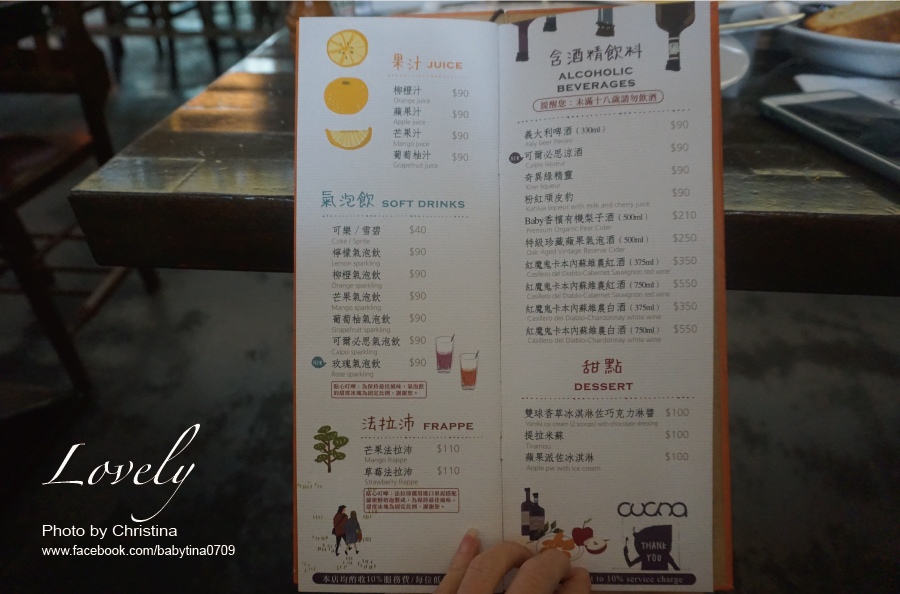 果汁 JUICE
柳橙汁 $90
Orange juice
蘋果汁 $90
Apple juice
芒果汁 $90
Mango juice
葡萄柚汁 $90
Grapefruit juice
氣泡飲 SOFT DRINKS
可樂 / 雪碧 $40
Coke / Sprite
檸檬氣泡飲 $90
Lemon sparkling
柳橙氣泡飲 $90
Orange sparkling
芒果氣泡飲 $90
Mango sparkling
葡萄柚氣泡飲 $90
Grapefruit sparkling
可爾必思氣泡飲 $90
Calpis sparkling
玫瑰氣泡飲 $90
Rose sparkling
貼心叮嚀：為保持最佳風味，氣泡飲
的甜度冰塊為固定比例，謝謝您。
法拉沛 FRAPPE
芒果法拉沛 $110
Mango frappe
草莓法拉沛 $110
Strawberry frappe
本店均酌收10%服務費/每位低
含酒精飲料
ALCOHOLIC
BEVERAGES
提醒您：未滿十八歲請勿飲酒
義大利啤酒 (330ml) $90
Italy Beer Peroni
可爾必思涼酒 $90
奇異綠精靈 $90
Kiwi liqueur
粉紅頑皮豹 $90
Kahlua liqueur with milk and cherry juice
Baby香檳有機梨子酒 (500ml) $210
Premium Organic Pear Cider
特級珍藏蘋果氣泡酒 (500ml) $250
Oak Aged Vintage Reserve Cider
紅魔鬼卡本內蘇維濃紅酒 (375ml) $350
Casillero del Diablo-Cabernet Sauvignon red wine
紅魔鬼卡本內蘇維濃紅酒 (750ml) $550
Casillero del Diablo-Cabernet Sauvignon red wine
紅魔鬼卡本內蘇維濃白酒 (375ml) $350
Casillero del Diablo-Chardonnay white wine
紅魔鬼卡本內蘇維濃白酒 (750ml) $550
Casillero del Diablo-Chardonnay white wine
甜點
DESSERT
雙球香草冰淇淋佐巧克力淋醬 $100
Vanilla ice cream (2 scoops) with chocolate dressing
提拉米蘇 $100
Tiramisu
蘋果派佐冰淇淋 $100
Apple pie with ice cream
cucina
THANK
YOU
to 10% service charge
Lovely
Photo by Christina
www.facebook.com/babytina0709